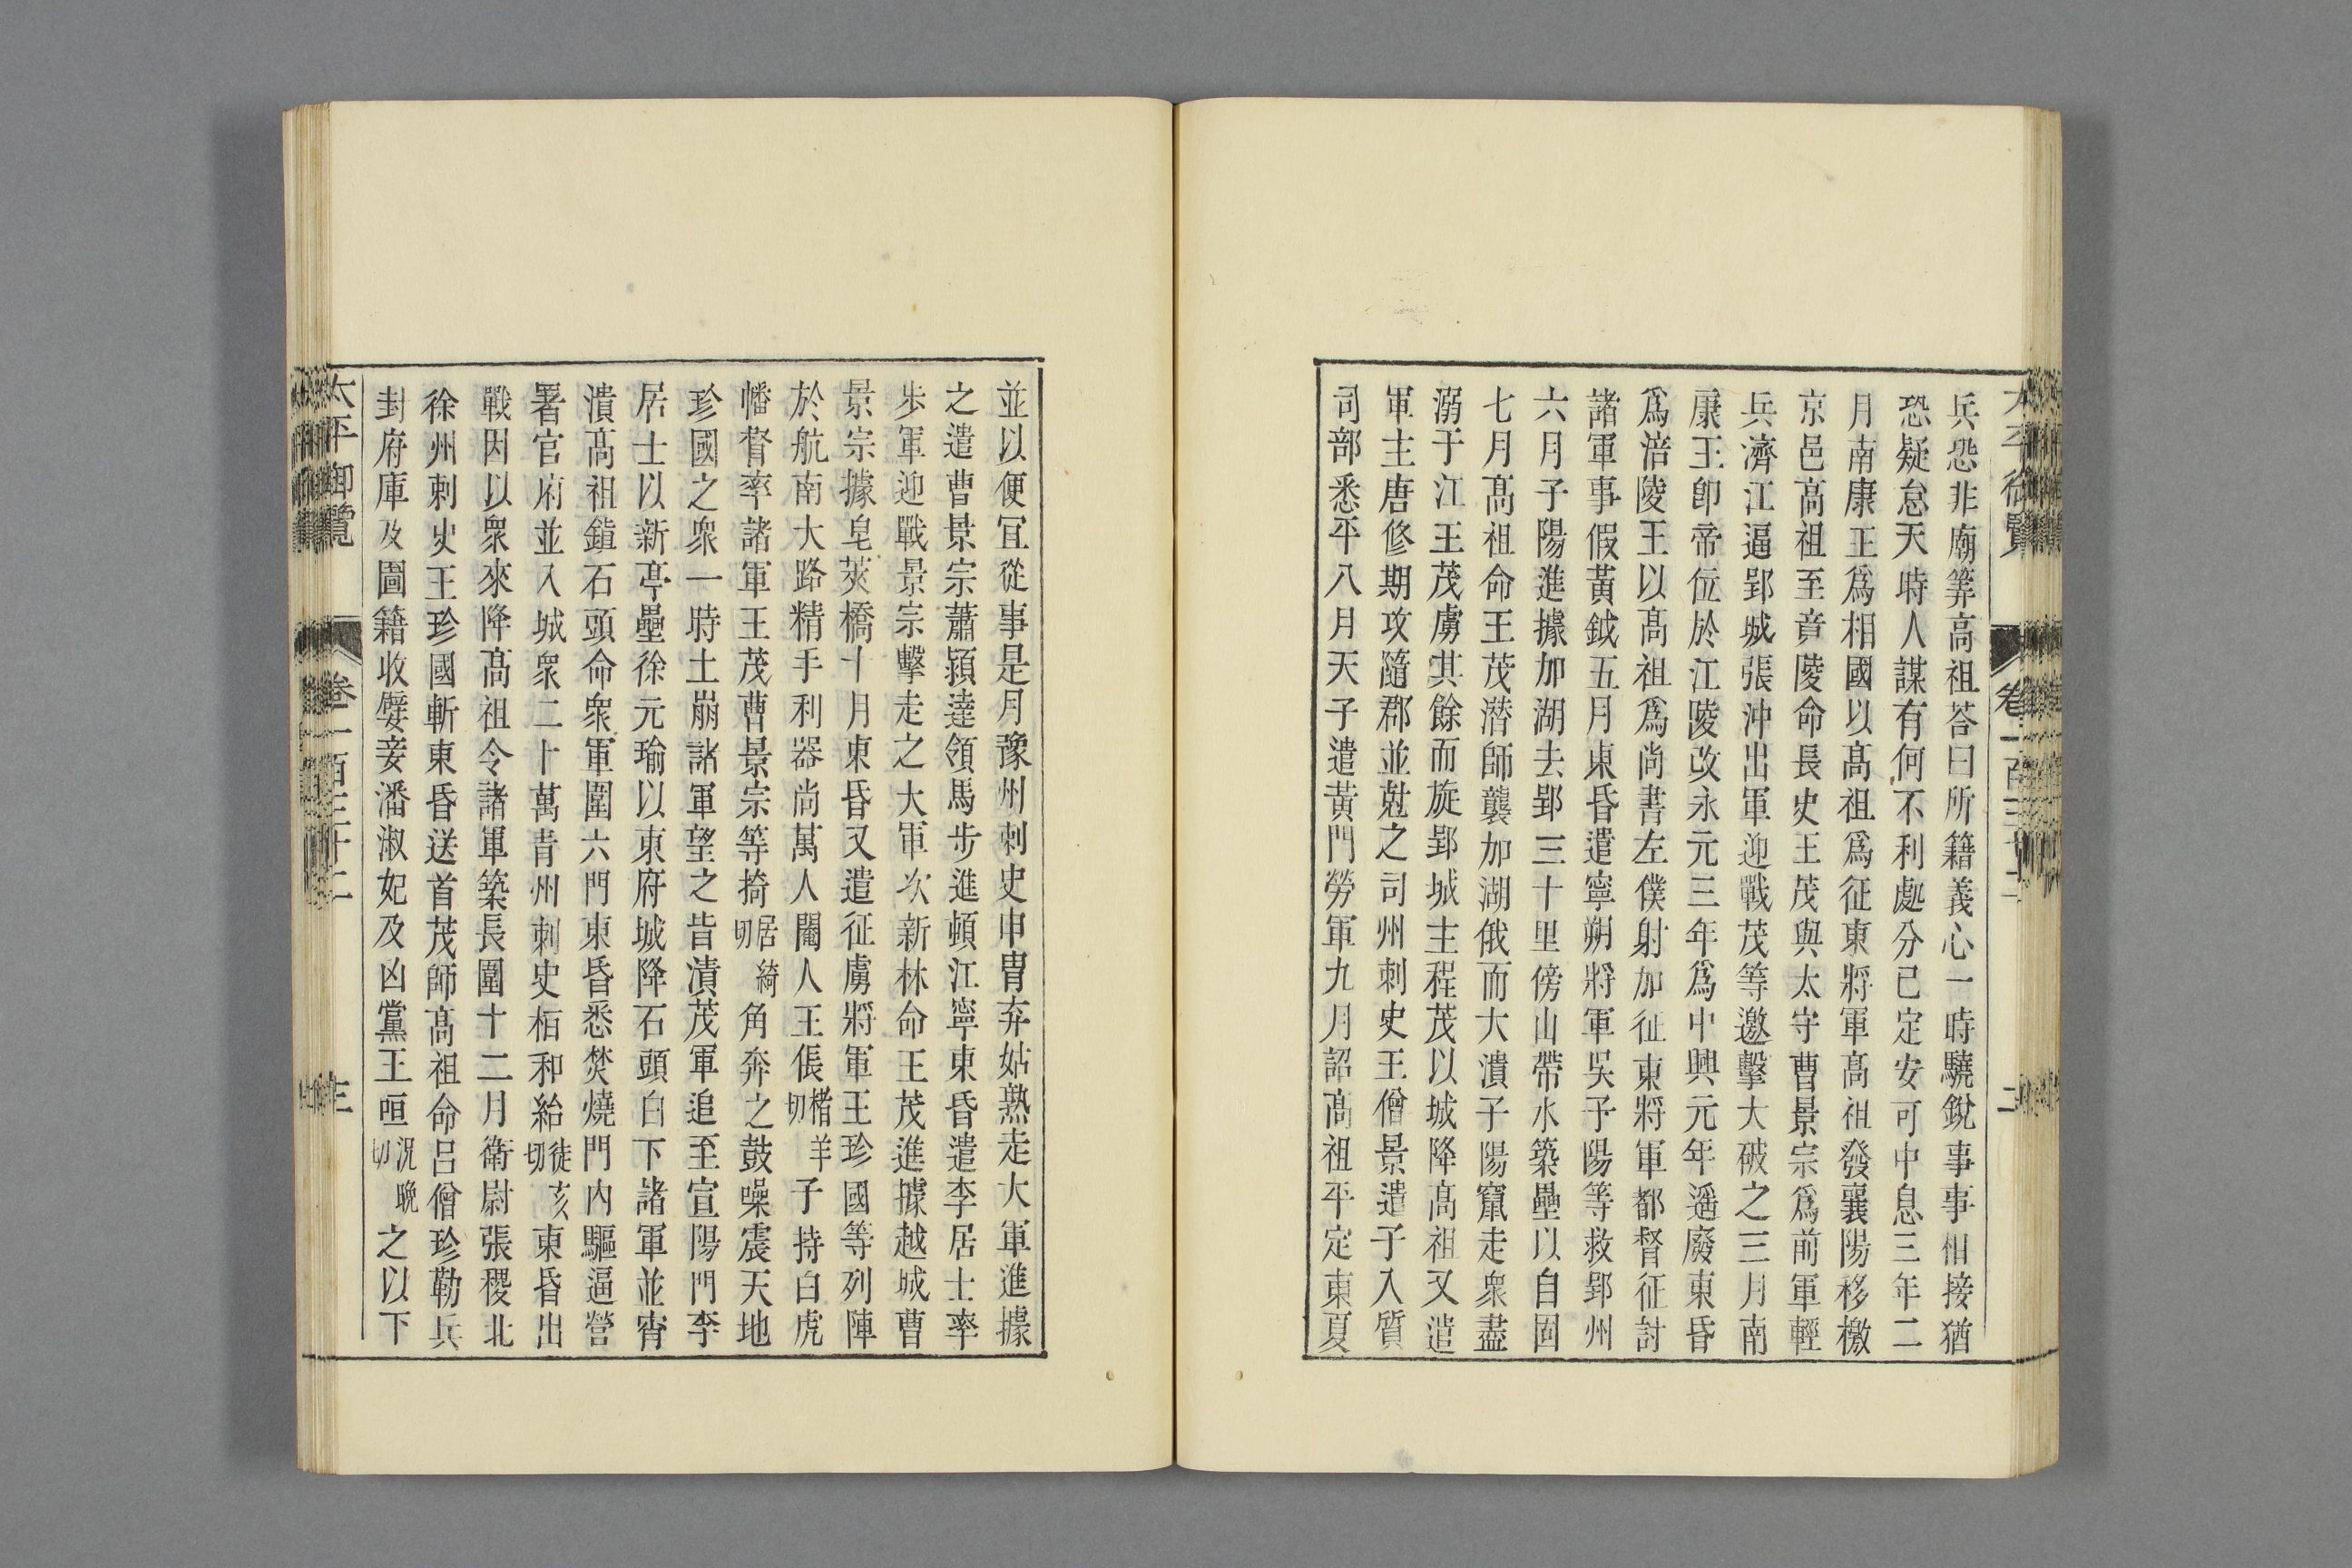 兵恐非廟筭高祖荅曰所籍義心一時驍銳事事相接猶
恐疑怠天時人謀有何不利處分已定安可中息三年二
月南康王爲相國以髙祖爲征東將軍髙祖發襄陽移檄
京邑髙祖至竟陵命長史王茂與太守曹景宗爲前軍輕
兵濟江逼郢城張沖出軍迎戰茂等邀擊大破之三月南
康王卽帝位於江陵改永元三年爲中興元年遥廢東昏
爲涪陵王以髙祖爲尚書左僕射加征東將軍都督征討
諸軍事假黃鉞五月東昏遣寧朔將軍吳子陽等救郢州
六月子陽進據加湖去郢三十里傍山帶水築壘以自固
七月髙祖命王茂潛師襲加湖俄而大潰子陽竄走衆盡
溺于江王茂虜其餘而旋郢城主程茂以城降髙祖又遣
軍主唐修期攻隨郡並尅之司州刺史王僧景遣子入質
司部悉平八月天子遣黃門勞軍九月詔髙祖平定東夏
太平御覽 卷一百三十三 二
並以便宜從事是月豫州刺史申冑弃姑熟走大軍進據
之遣曹景宗蕭頴達領馬步進頓江寧東昏遣李居士率
步軍迎戰景宗擊走之大軍次新林命王茂進據越城曹
景宗據皂莢橋十月東昏又遣征虜將軍王珍國等列陣
於航南大路精手利器尚萬人閹人王倀楮羊切子持白虎
幡督率諸軍王茂曹景宗等掎居綺切角奔之鼓噪震天地
珍國之衆一時土崩諸軍望之皆潰茂軍追至宣陽門李
居士以新亭壘徐元瑜以東府城降石頭白下諸軍並宵
潰髙祖鎮石頭命衆軍圍六門東昏悉焚燒門內驅逼營
署官府並入城衆二十萬青州刺史栢和紿徒亥切東昏出
戰因以衆來降髙祖令諸軍築長圍十二月衛尉張稷北
徐州刺史王珍國斬東昏送首茂師髙祖命呂僧珍勒兵
封府庫及圖籍收嬖妾潘淑妃及凶黨王咺況晚切之以下
太平御覽 卷一百三十三 三